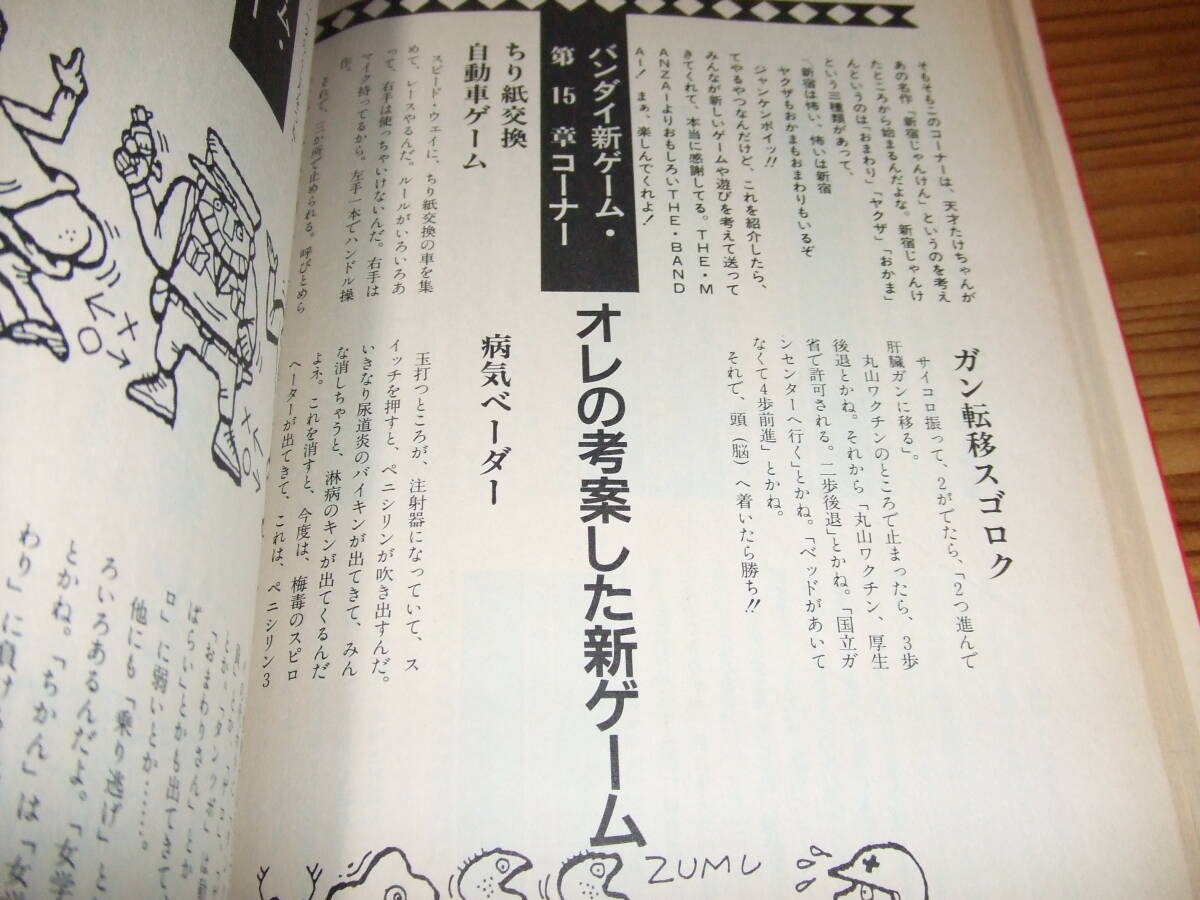 バンダイ新ゲーム・
第15章コーナー
オレの考案した新ゲーム
そもそもこのコーナーは、天才たけちゃんが
あの名作「新宿じゃんけん」というのを考え
たところから始まるんだよな。新宿じゃんけ
んというのは「おまわり」「ヤクザ」「おかま」
という三種類があって、
「新宿は怖い、怖いは新宿
ヤクザもおかまもおまわりもいるぞ
ジャンケンポイッ!!
てやるやつなんだけど、これを紹介したら、
みんなが新しいゲームや遊びを考えて送って
きてくれて、本当に感謝してる。THE・M
ANZAIよりおもしろいTHE・BAND
AI!まぁ、楽しんでくれよ!
ガン転移スゴロク
サイコロ振って、2がでたら、「2つ進んで
肝臓ガンに移る」。
丸山ワクチンのところで止まったら、3歩
後退とかね。それから「丸山ワクチン、厚生
省で許可される。二歩後退」とかね。「国立ガ
ンセンターへ行く」とかね。「ベッドがあいて
なくて4歩前進」とかね。
それで、頭(脳)へ着いたら勝ち!!
ちり紙交換
自動車ゲーム
スピード・ウェイに、ちり紙交換の車を集
めて、レースやるんだ。ルールがいろいろあ
って、右手は使っちゃいけないんだ。右手は
マイク持ってるから。左手一本でハンドル操
作。
されて、三か所で止められる。呼びとめら
病気ベーダー
玉打つところが、注射器になっていて、ス
イッチを押すと、ペニシリンが吹き出すんだ。
いきなり尿道炎のバイキンが出てきて、みん
な消しちゃうと、淋病のキンが出てくるんだ
よネ。これを消すと、今度は、梅毒のスピロ
ヘーターが出てきて、これは、ペニシリン3
ZUMU
「おまわりさん」とか
ばらい」とかも出てきて
ロ」に弱いとか……。
他にも「乗り逃げ」と
ろいろあるんだよ。「女学
とかね。「ちかん」は「女学
わり」に負ける